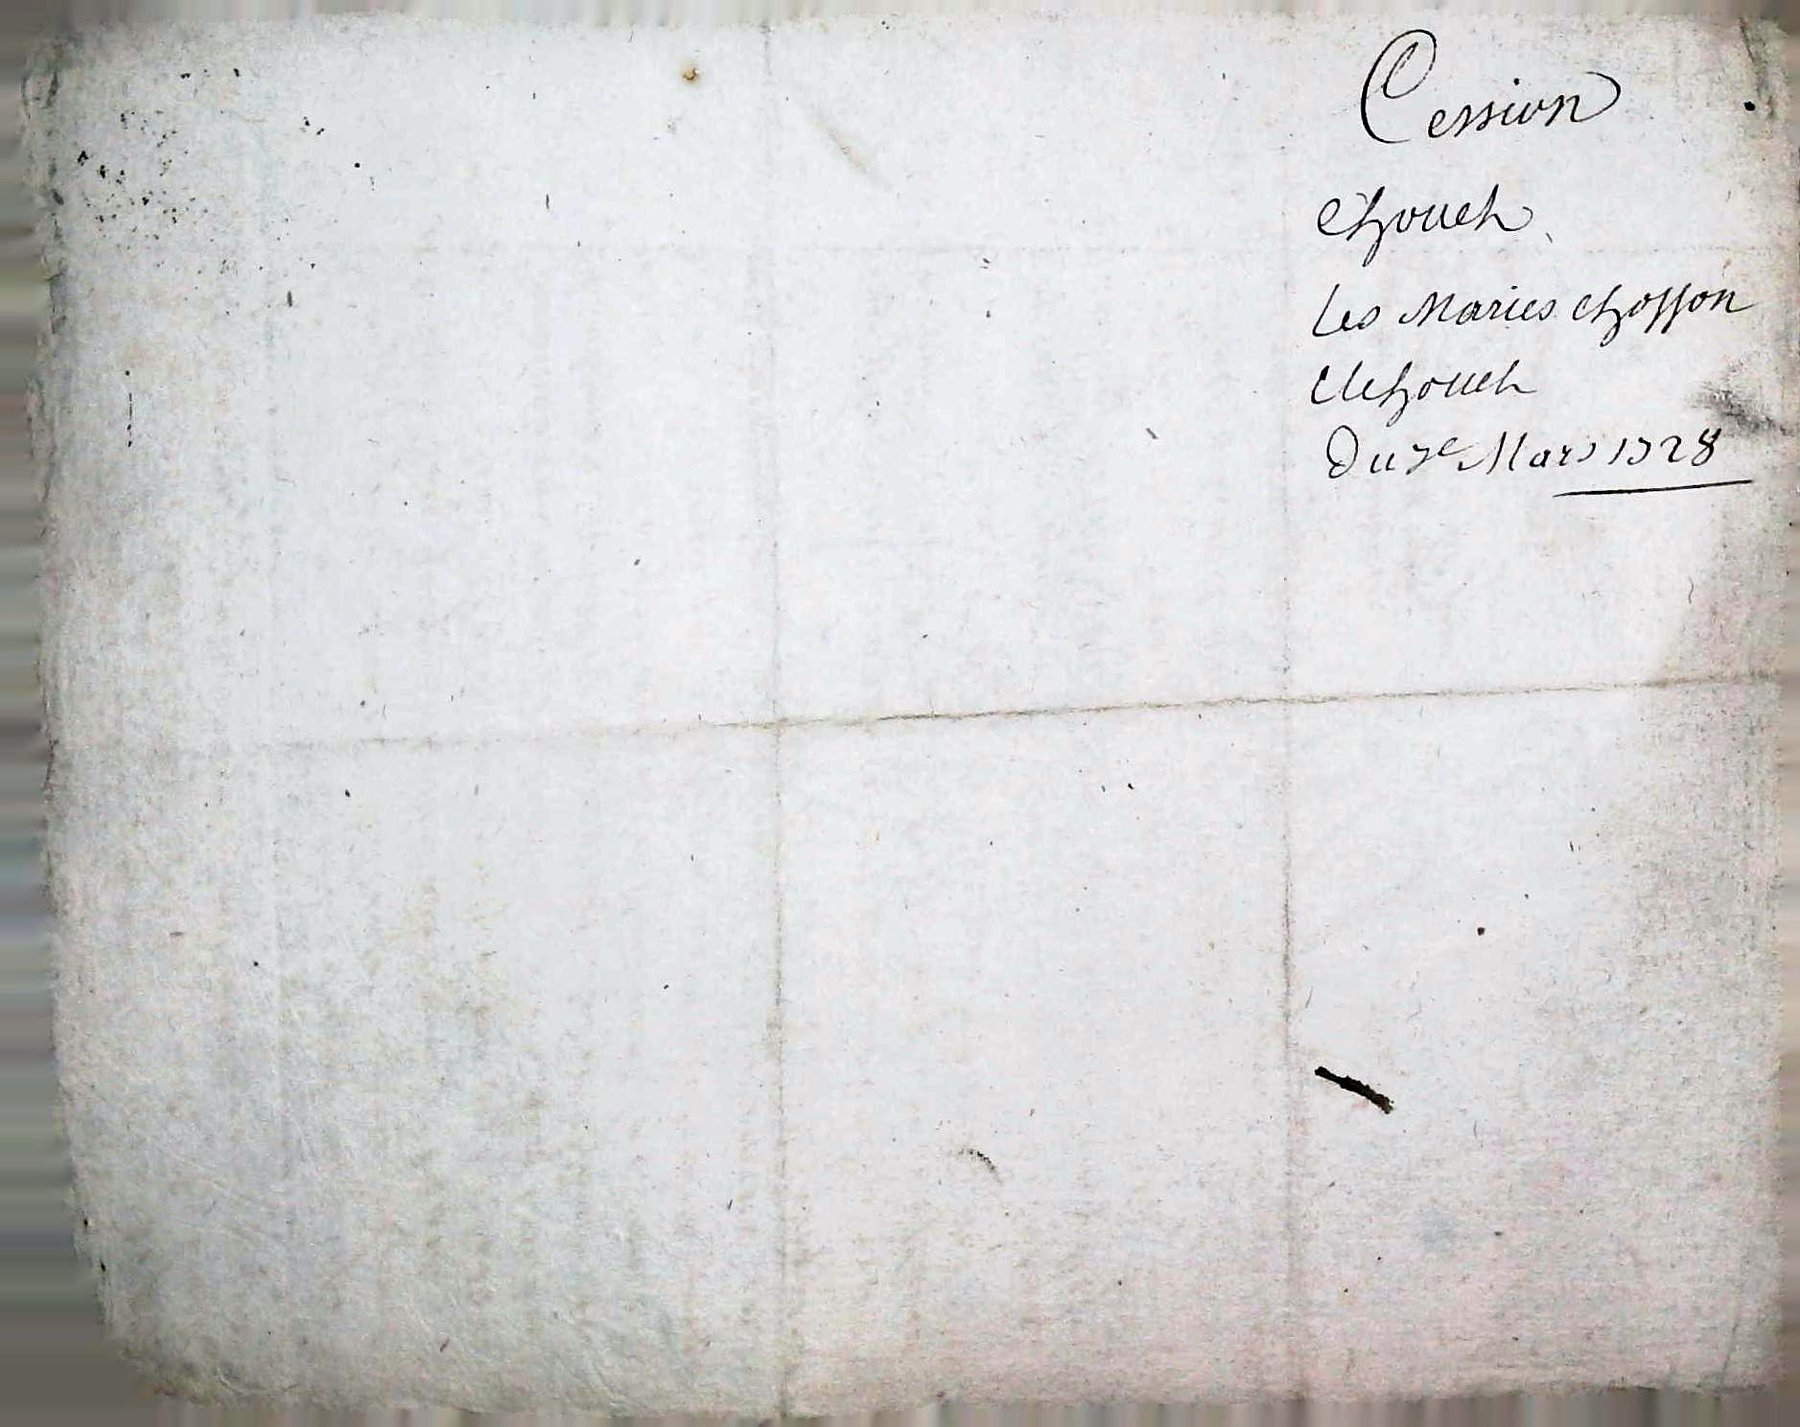 Cession
Chouch
les Maries Chosson
Et Chouch
Du 7e Mars 1728